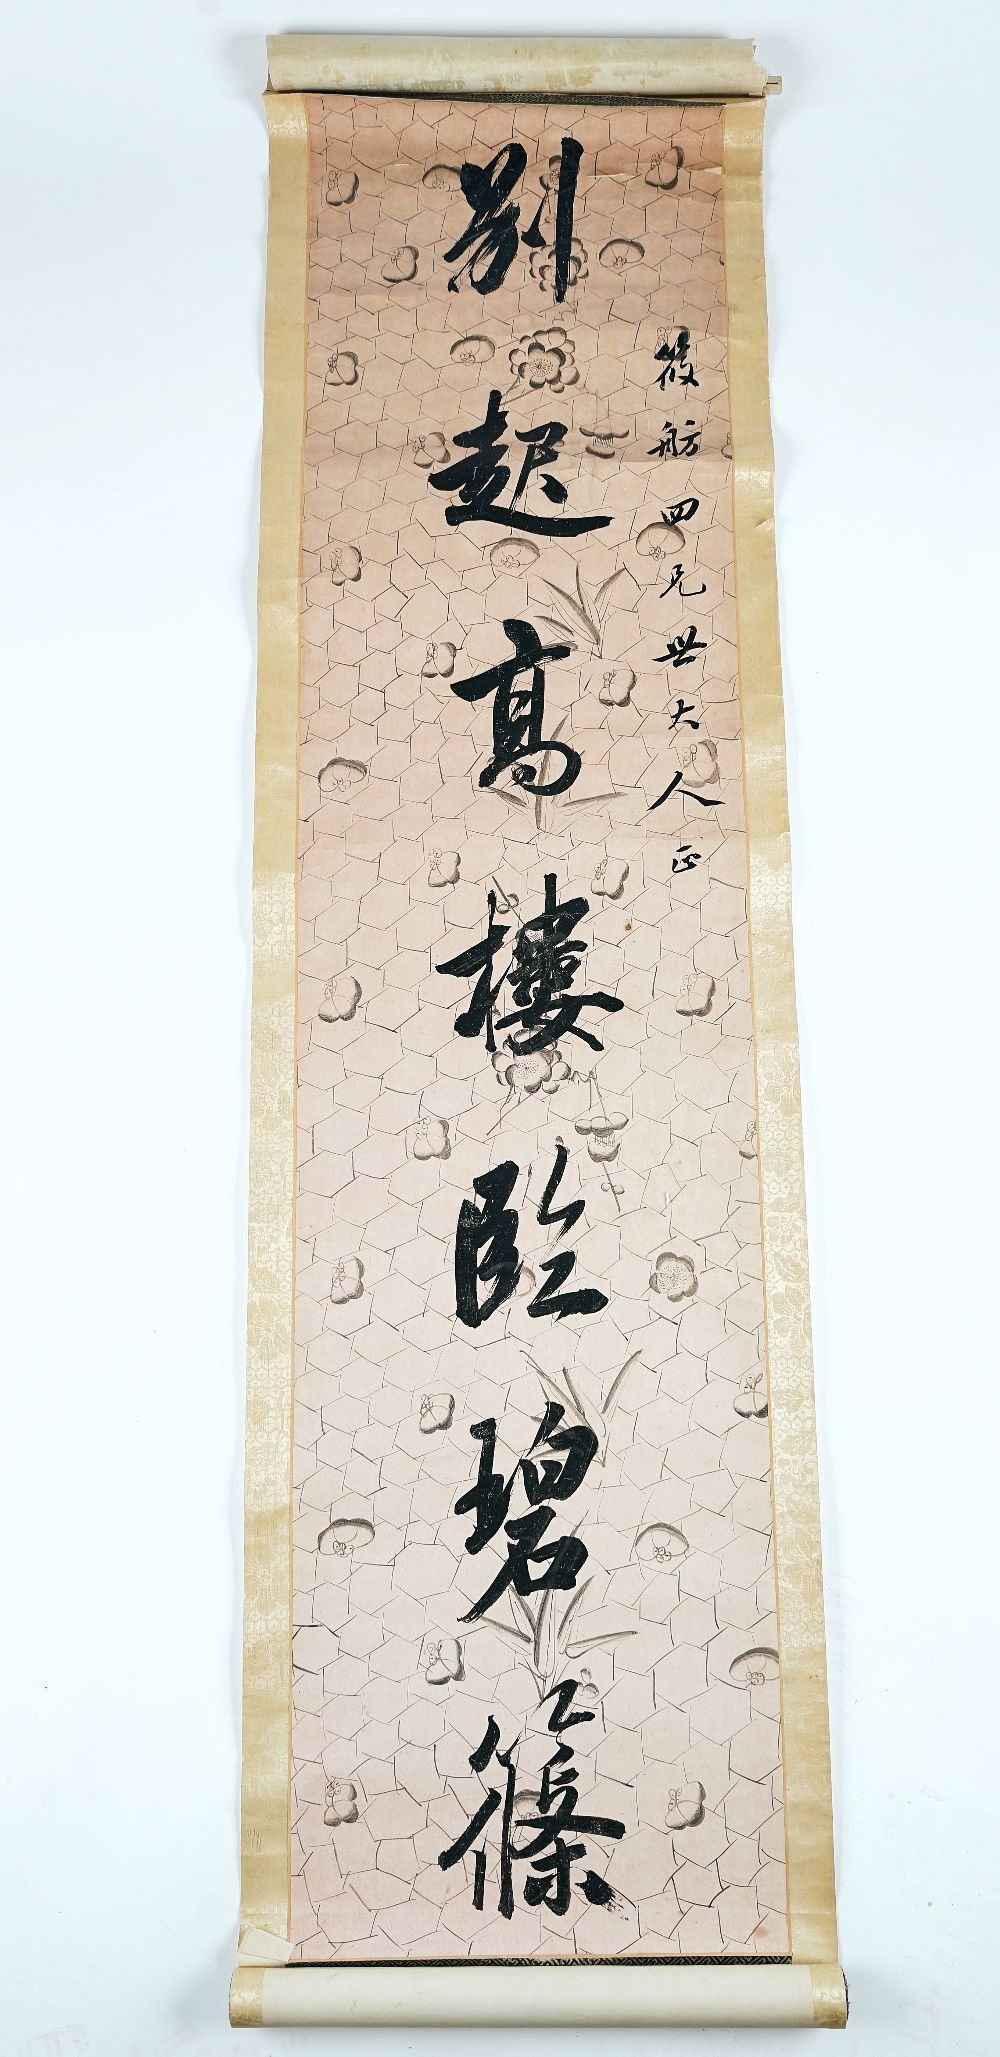 筱舫四兄世大人正
別起高樓臨碧篠